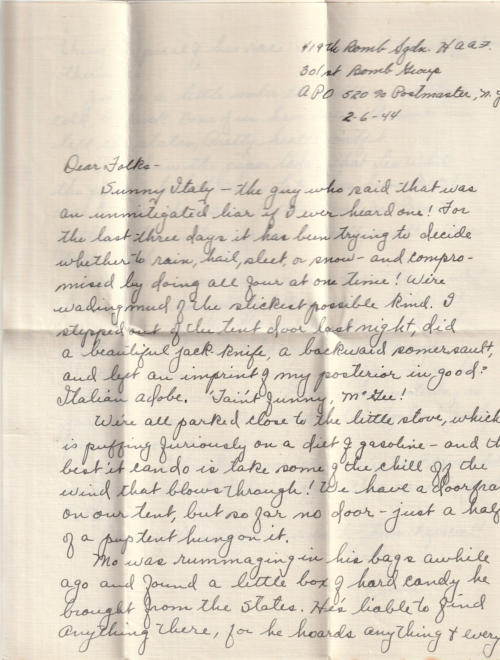 419th Bomb Sqdn. H A A F.
301st Bomb Group
APO 520 % Postmaster, N.Y
2-6-44
Dear Folks-
Sunny Italy - the guy who said that was
an unmitigated liar if I ever heard one! For
the last three days it has been trying to decide
whether to rain, hail, sleet, or snow - and compro-
mised by doing all four at one time! We're
wading mud of the stickest possible kind. I
stepped out of the tent door last night, did
a beautiful jack knife, a backward somersault,
and left an imprint of my posterior in good
Italian adobe. 'Taint funny, McGee!
We're all parked close to the little stove, which
is puffing furiously on a diet of gasoline - and th
best it can do is take some of the chill off the
wind that blows through! We have a doorfra
on our tent, but so far no door - just a half
of a pup tent hung on it.
Mo was rummaging in his bags awhile
ago and found a little box of hard candy he
brought from the States. He's liable to find
anything there, for he hoards anything & every